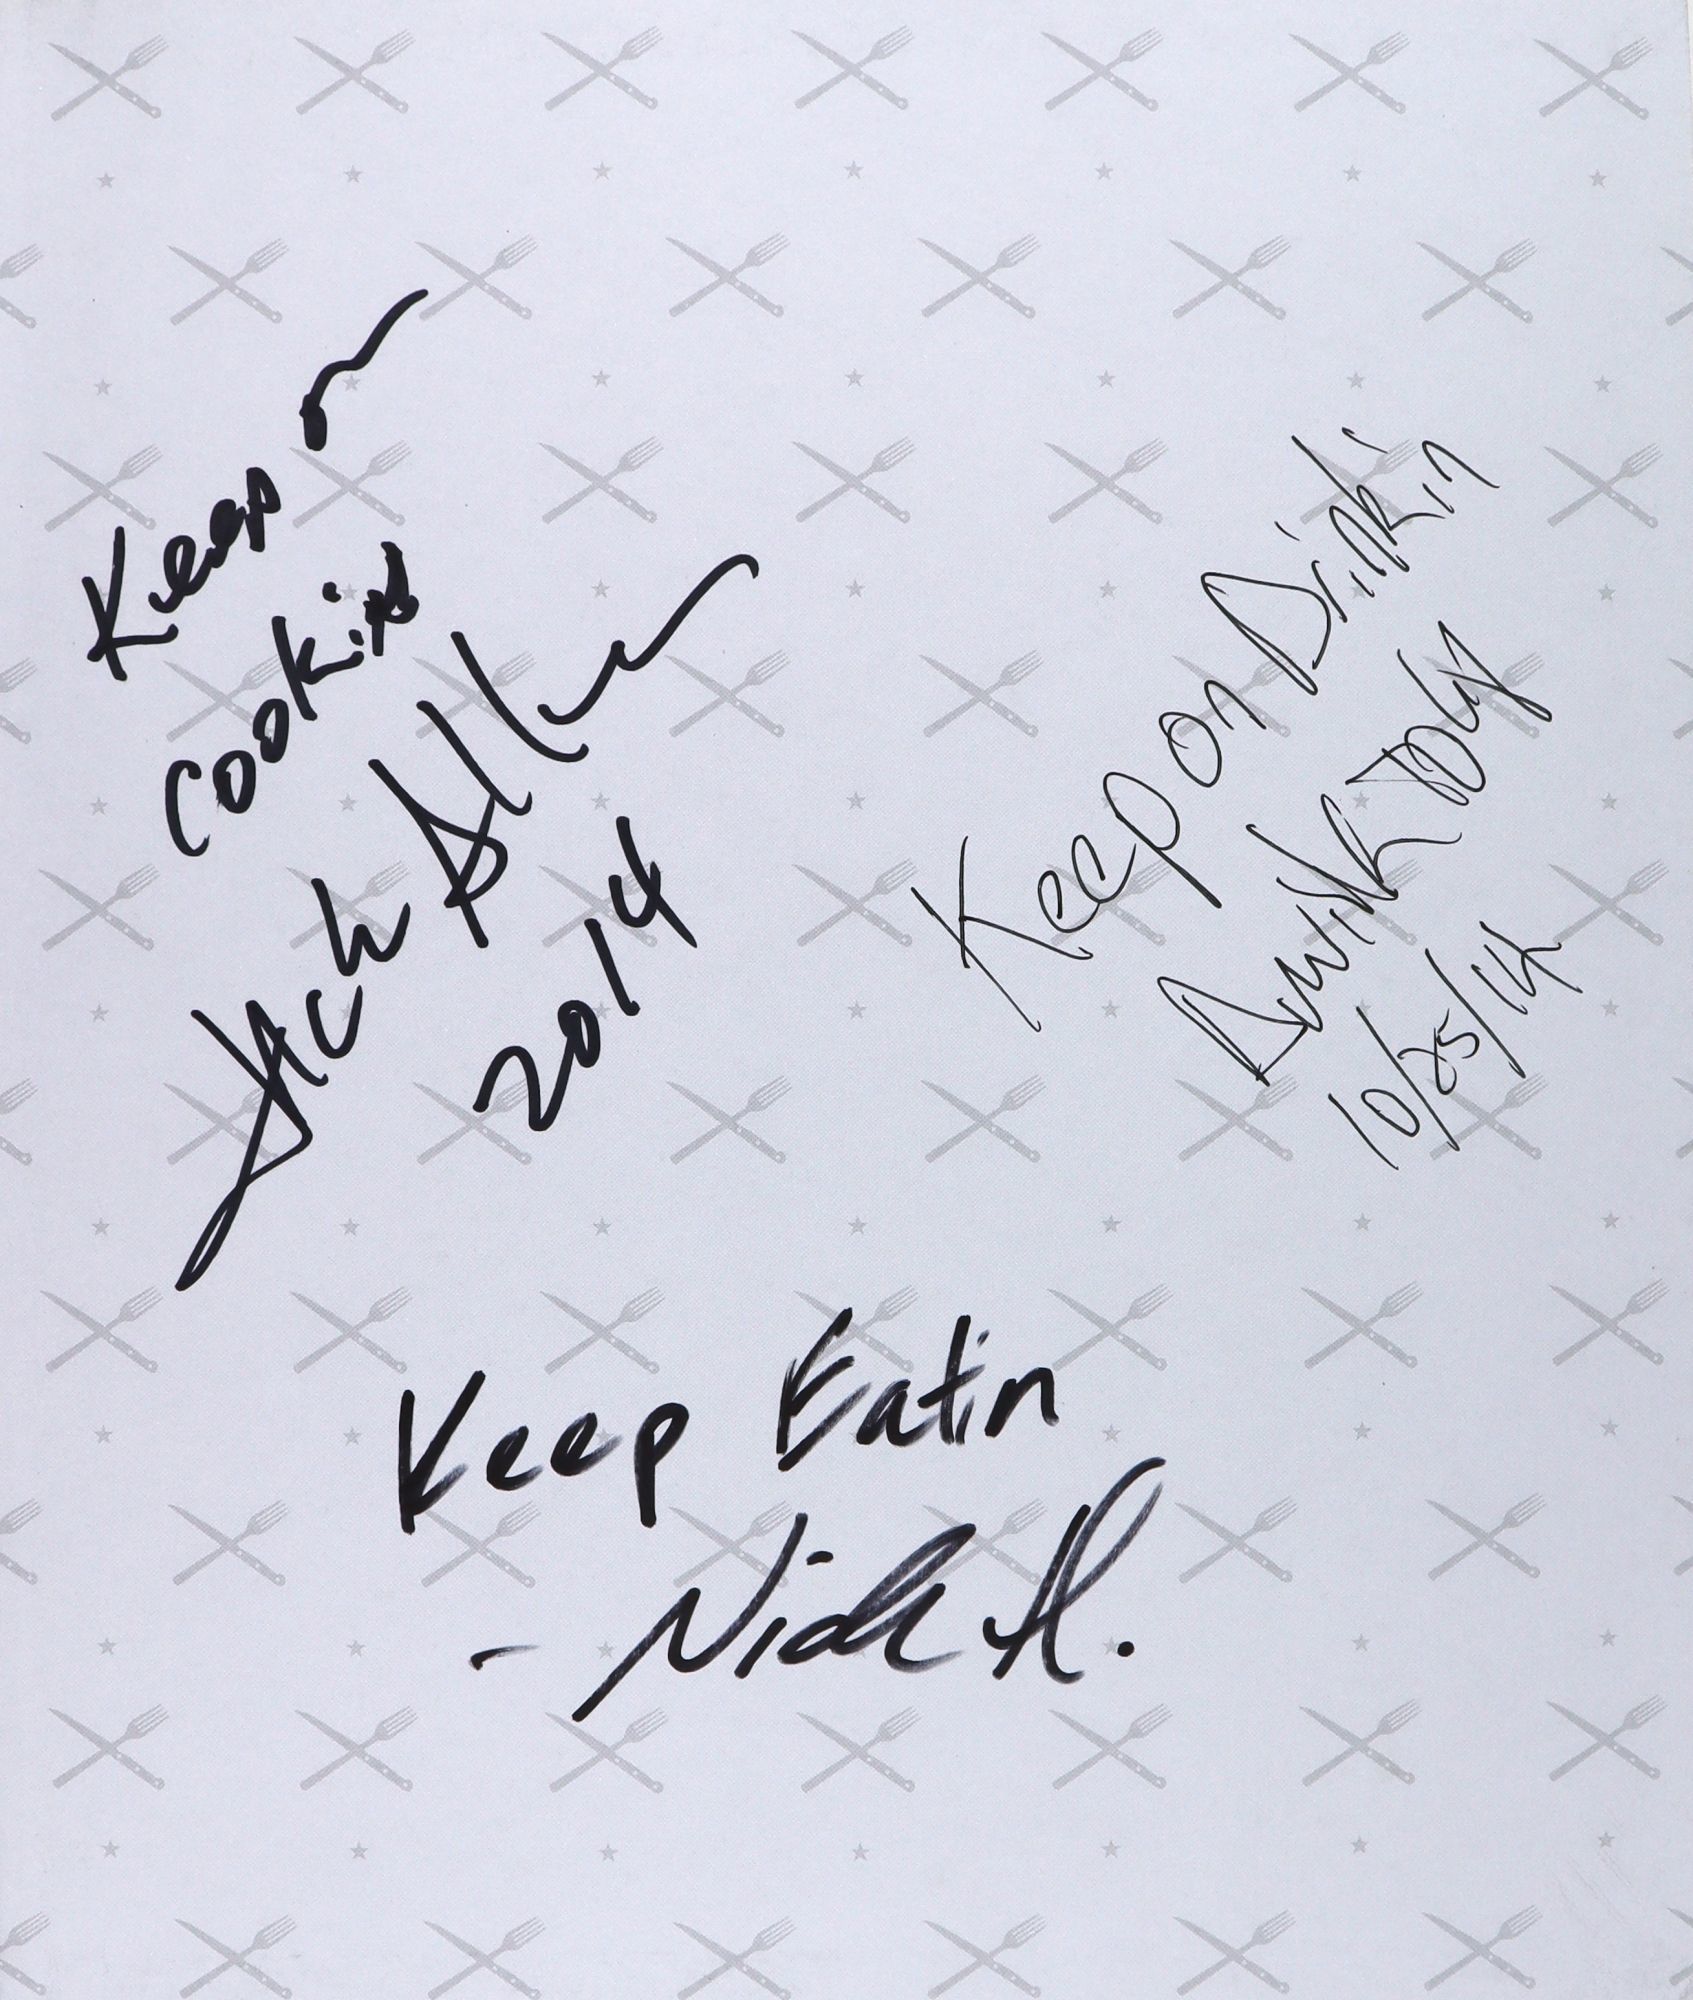 Keep on
cookin
Jack
2014
Keep on Drinkin
10/25/14
Keep Eatin
- Nick A.